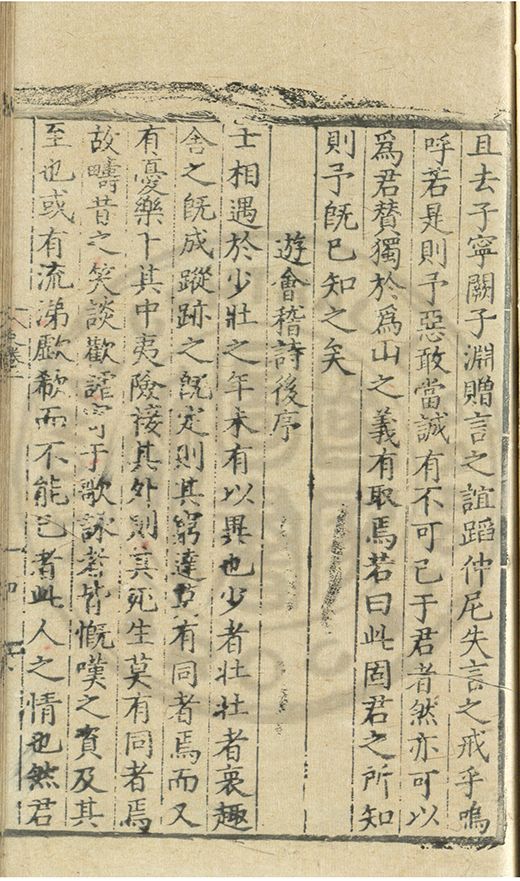 且去子寧闕子淵贈言之誼蹈仲尼失言之戒乎嗚
呼若是則予惡敢當誠有不可已于君者然亦可以
爲君贊獨於爲山之義有取焉若曰此固君之所知
則予旣已知之矣
遊會稽詩後序
士相遇於少壯之年未有以異也少者壯壯者衰趣
舍之旣成蹤跡之旣定則其窮達莫有同者焉而又
有憂樂卜其中夷險接其外則其死生莫有同者焉
故疇昔之笑談歡謔寄于歌詠者皆慨嘆之資及其
至也或有流涕歔欷而不能已者此人之情也然君